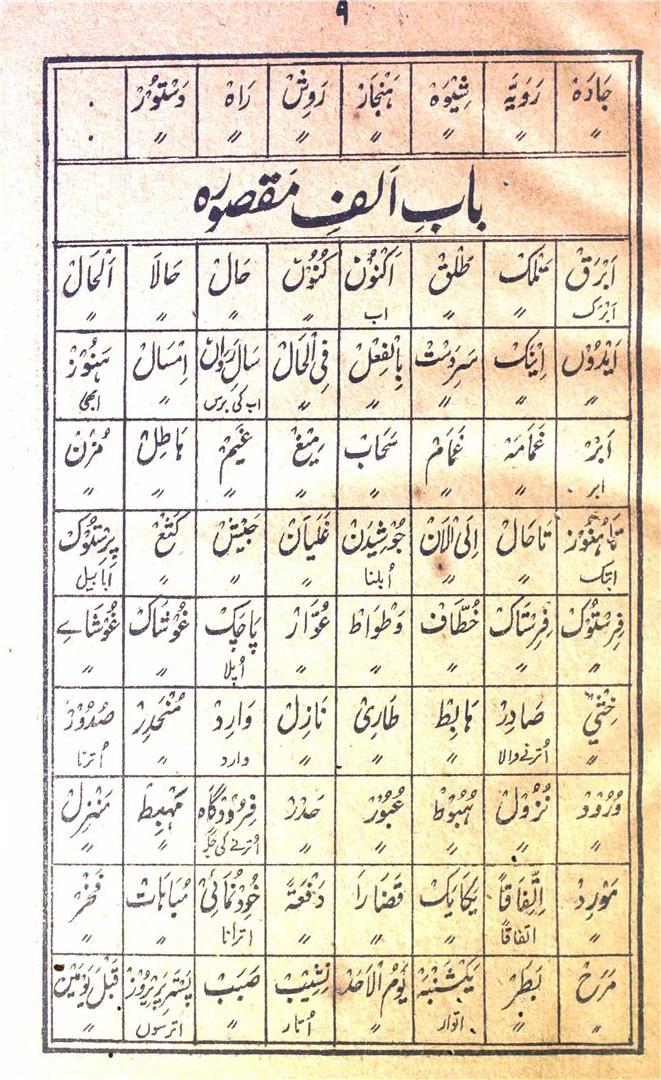 ۹
جَادَہ رَوِیَّہ شِیْوَہ ہَنْجَارْ رَوِشْ رَاہْ دَسْتُوْرْ ۰
〃 〃 〃 〃 〃 〃 〃 ۰
بابِ اَلفِ مَقصورہ
اَبْرَقْ تَلْکْ طَلْقْ اَکْنُوْن کُنُوْنْ حَالْ حَالَا اَلْحَالْ
اَبْرَک 〃 〃 اب 〃 〃 〃 〃
اَیْدُوْن اِیْنَکْ سَرِدَسْت بِالْفِعْل فِی الْحَالْ سَالِ رَوَانْ اِمْسَالْ ہَنُوْزْ
〃 〃 〃 〃 〃 اب کی برس 〃 ابھی
اَبْرْ غَمَامَہ غَمَامْ سَحَابْ مِیْغْ غَیْمْ ہَاطِلْ مُزْنْ
ابر 〃 〃 〃 〃 〃 〃 〃
تَاہَنُوْز تَاحَالْ اِلَی الْاٰن جُوْشِیْدَن غَلَیَانْ جَیْشْ کَثْعْ پَرِسْتُوْک
ابتک 〃 〃 اُبلنا 〃 〃 〃 ابابیل
فَرِسْتُوْک فَرِسْتَاک خُطَّاف وَطْوَاط عُوَّارْ پَاچَک غُوْشَاک غُوْشَائے
〃 〃 〃 〃 〃 اُپلا 〃 〃
خِثْیْ صَادِرْ ہَابِطْ طَارِیْ نَازِلْ وَارِدْ مُنْحَدِرْ صُدُوْرْ
〃 اُترنے والا 〃 〃 〃 وارد 〃 اُترنا
وُرُوْد نُزُوْل ہُبُوْط عُبُوْرْ حَدْرْ فِرُوْدْگَاہ مَہْبِطْ مَنْزِلْ
〃 〃 〃 〃 〃 اُترنے کی جگہ 〃 〃
مَوْرِدْ اِتِّفَاقًا یَکَایَک قَضَارَا دَفْعَۃً خُودْنُمَائِیْ مُبَاہَات فَخْرْ
〃 اتفاقاً 〃 〃 〃 اترانا 〃 〃
مَرَحْ بَطَرْ یَکْشَنْبَہ یَوْمُ الْاَحَد نَشِیْبْ صَبَبْ پَسْتَرِپَرِیْرُوْز قَبْل یَوْمَیْن
〃 〃 اتوار 〃 اُتار 〃 اترسوں 〃